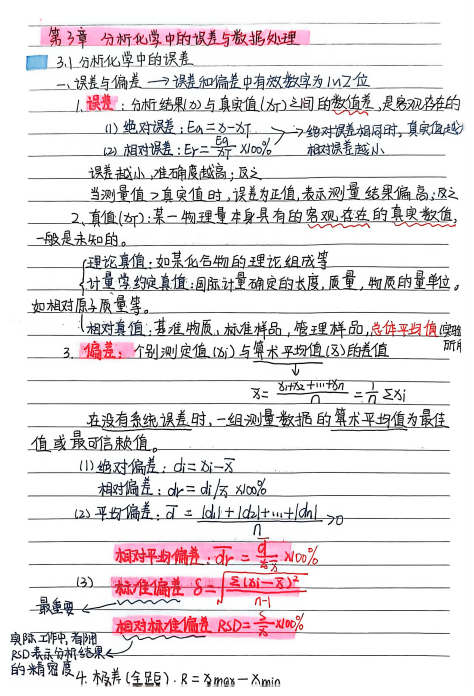 第3章 分析化学中的误差与数据处理
3.1 分析化学中的误差
一、误差与偏差 → 误差和偏差中有效数字为1~2位
1. 误差：分析结果(x)与真实值(xT)之间的数值差，是客观存在的
(1) 绝对误差：Ea=x-xT → 绝对误差相同时，真实值越
(2) 相对误差：Er=Ea/xT ×100% 相对误差越小
误差越小，准确度越高；反之
当测量值>真实值时，误差为正值，表示测量结果偏高；反之
2. 真值(xT)：某一物理量本身具有的客观存在的真实数值，
一般是未知的。
理论真值：如某化合物的理论组成等
计量学约定真值：国际计量确定的长度，质量，物质的量单位。
如相对原子质量等。
相对真值：基准物质、标准样品，管理样品，总体平均值(实验
所用
3. 偏差：个别测定值(xi)与算术平均值(x̄)的差值
x̄=(x1+x2+…+xn)/n=1/n Σxi
在没有系统误差时，一组测量数据的算术平均值为最佳
值或最可信赖值。
(1) 绝对偏差：di=xi-x̄
相对偏差：dr=di/x̄ ×100%
(2) 平均偏差：d̄=(|d1|+|d2|+…+|dn|)/n >0
相对平均偏差：d̄r=d̄/x̄ ×100%
(3) 标准偏差 S=√(Σ(xi-x̄)²/(n-1))
最重要
相对标准偏差 RSD=S/x̄ ×100%
实际工作中，看用
RSD表示分析结果
的精密度
4. 极差(全距)：R=xmax-xmin